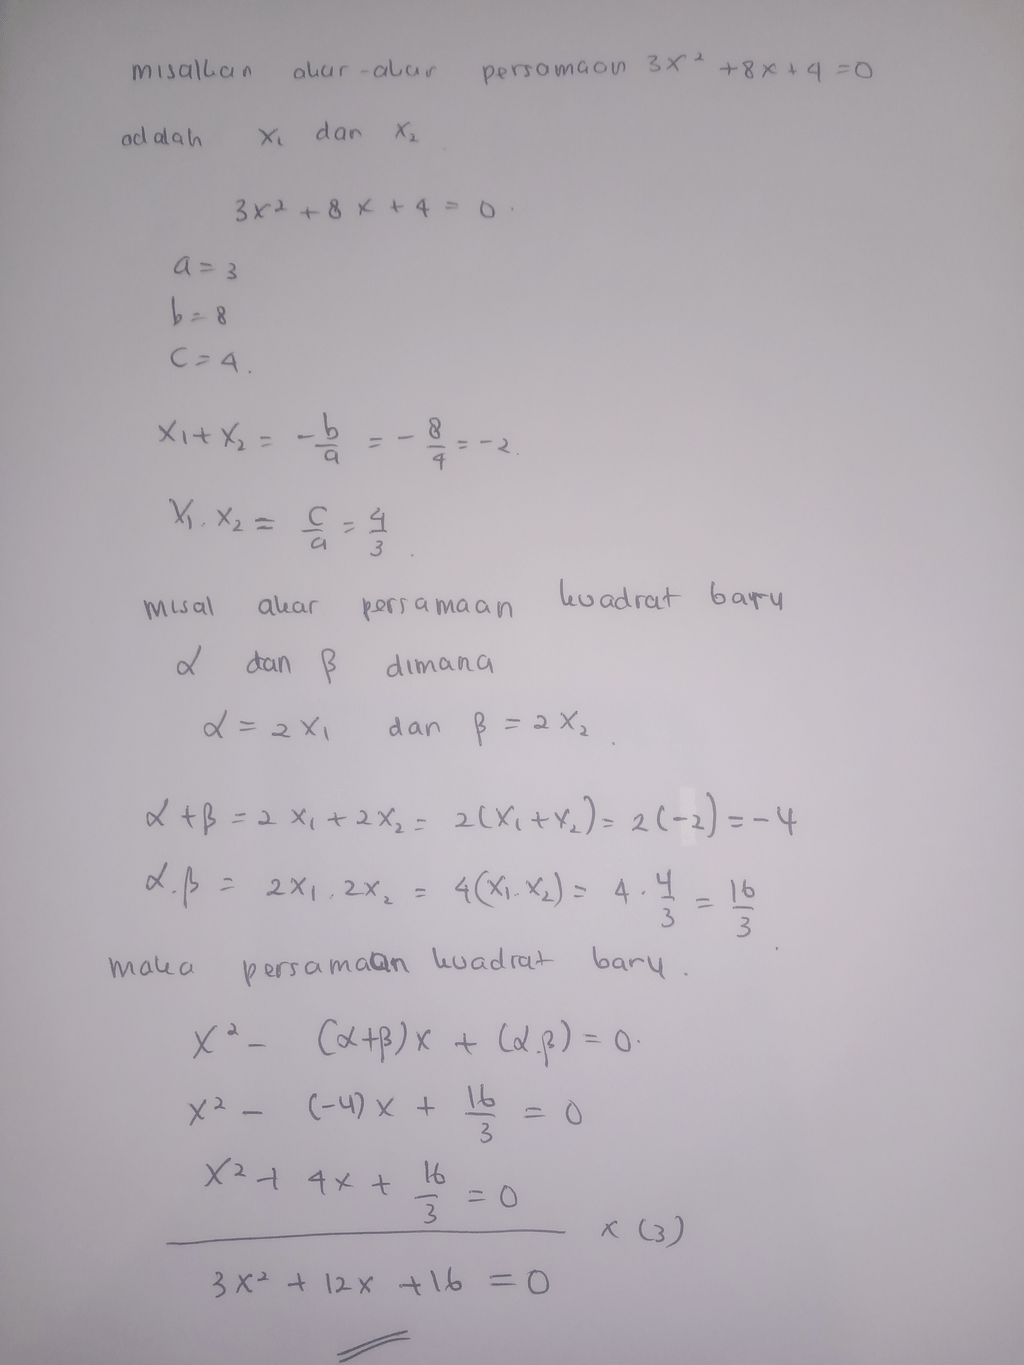 misalkan akar-akar persamaan 3x² + 8x + 4 = 0
adalah x₁ dan x₂
3x² + 8x + 4 = 0.
a = 3
b = 8
c = 4.
x₁ + x₂ = -b/a = -8/4 = -2.
x₁ . x₂ = c/a = 4/3.
misal akar persamaan kuadrat baru
α dan β dimana
α = 2x₁ dan β = 2x₂.
α + β = 2x₁ + 2x₂ = 2(x₁ + x₂) = 2(-2) = -4
α . β = 2x₁ . 2x₂ = 4(x₁ . x₂) = 4 . 4/3 = 16/3.
maka persamaan kuadrat baru.
x² - (α+β)x + (α.β) = 0.
x² - (-4)x + 16/3 = 0
x² + 4x + 16/3 = 0
x (3)
3x² + 12x + 16 = 0